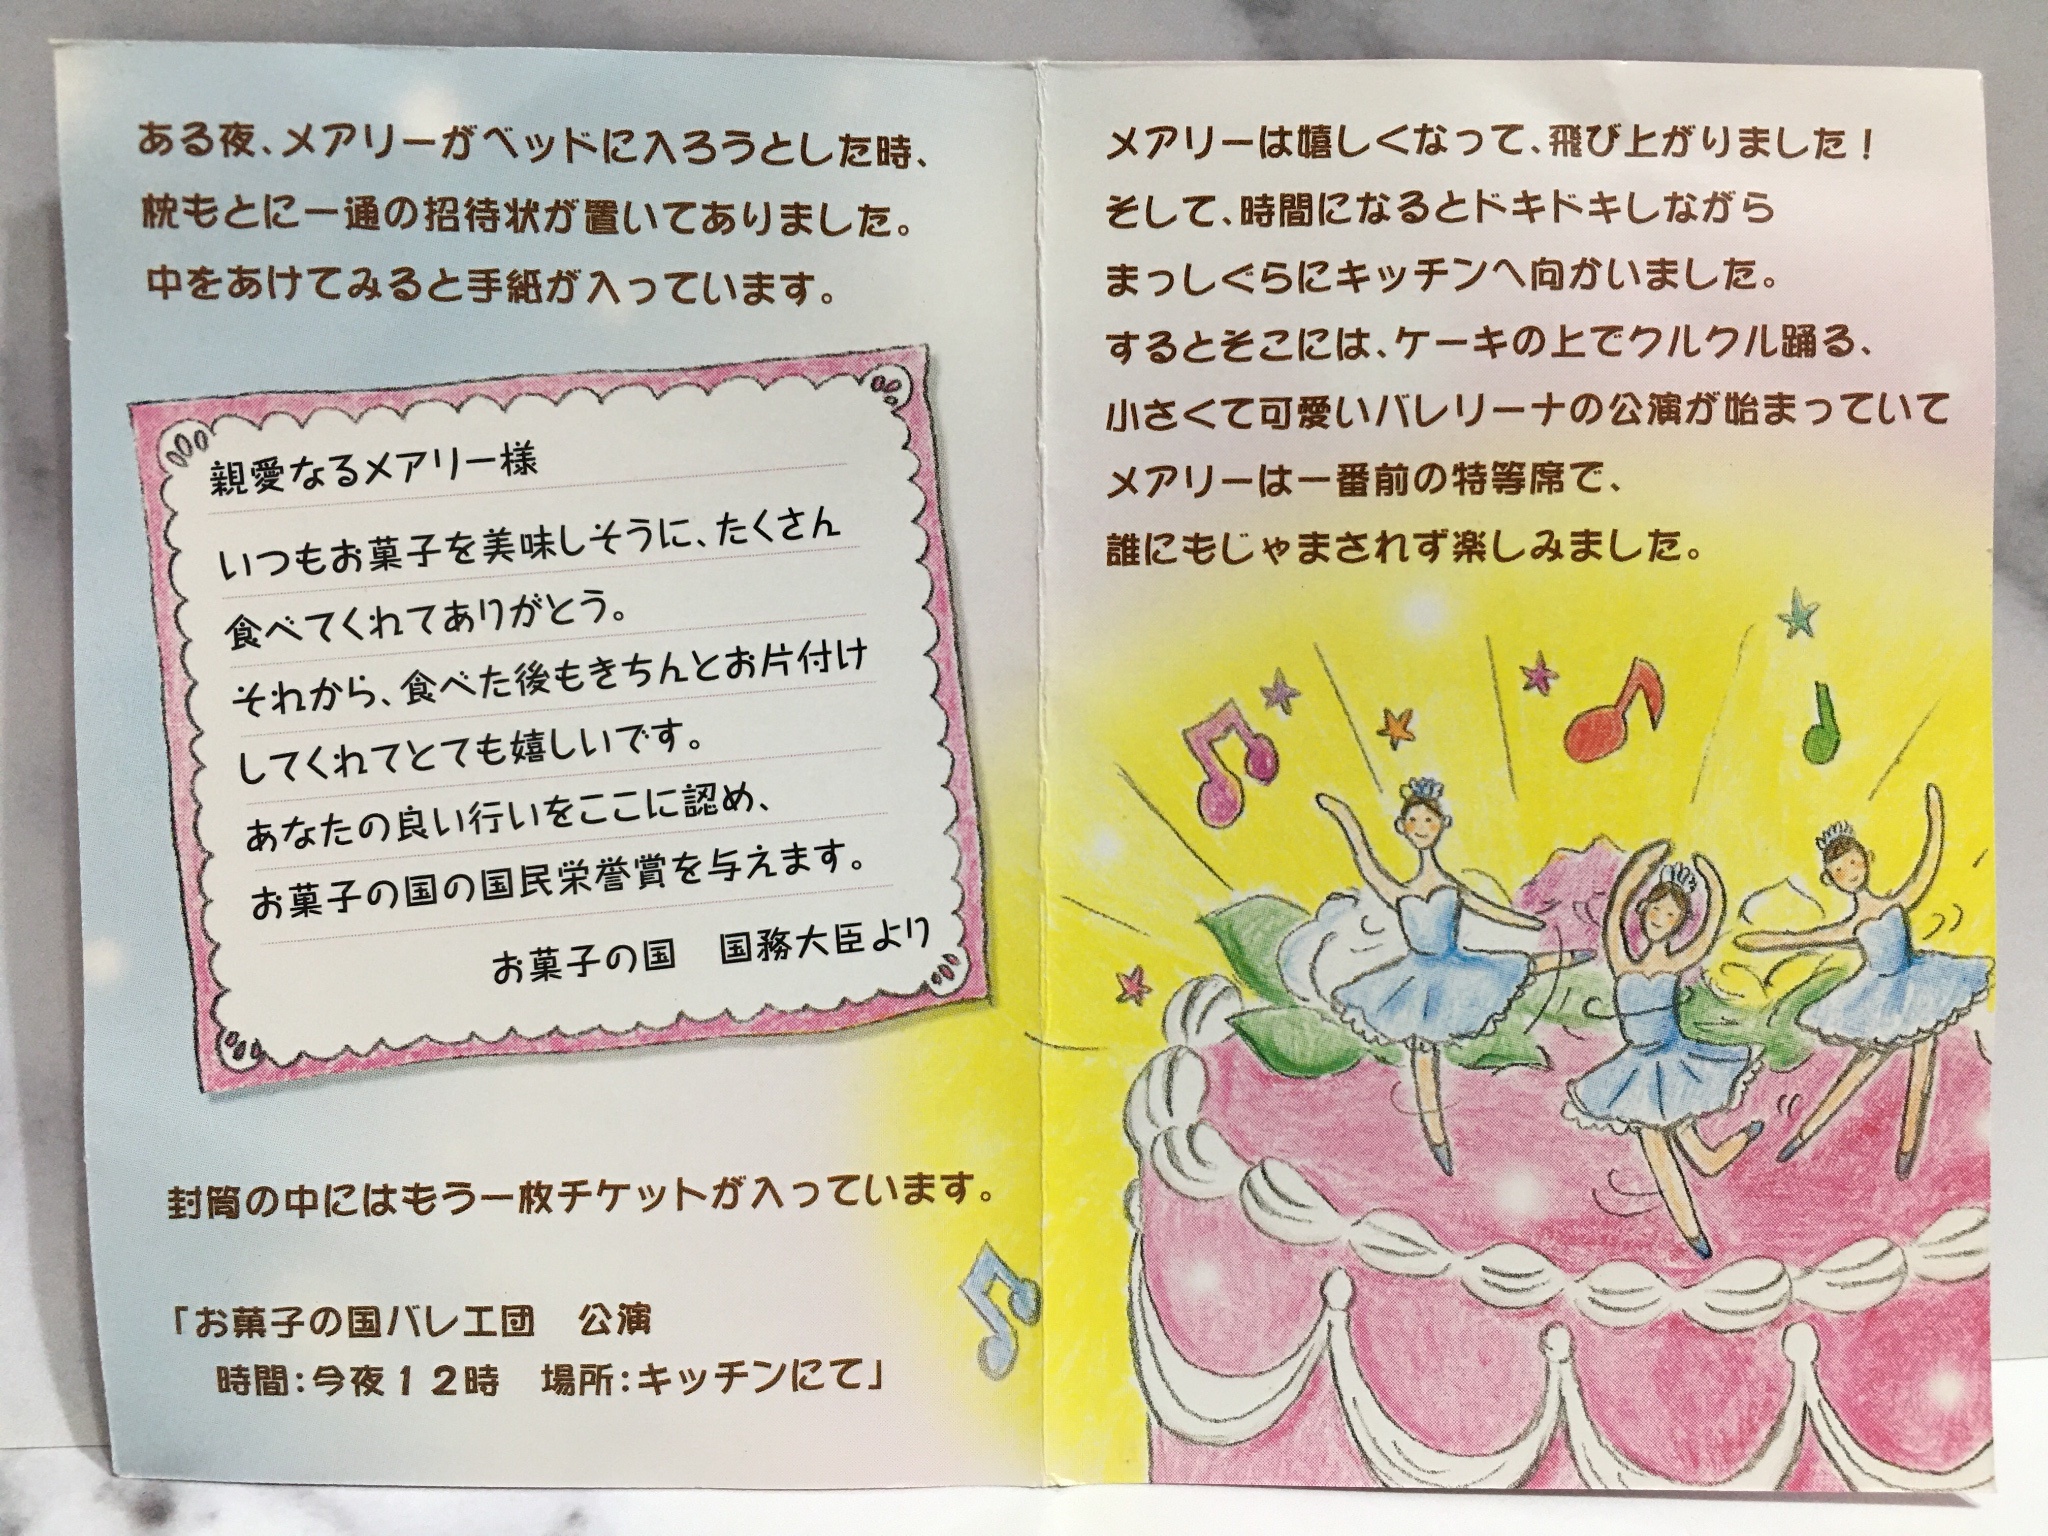 ある夜、メアリーがベッドに入ろうとした時、
枕もとに一通の招待状が置いてありました。
中をあけてみると手紙が入っています。
親愛なるメアリー様
いつもお菓子を美味しそうに、たくさん
食べてくれてありがとう。
それから、食べた後もきちんとお片付け
してくれてとても嬉しいです。
あなたの良い行いをここに認め、
お菓子の国の国民栄誉賞を与えます。
お菓子の国　国務大臣より
封筒の中にはもう一枚チケットが入っています。
「お菓子の国バレエ団　公演
時間：今夜１２時　場所：キッチンにて」
メアリーは嬉しくなって、飛び上がりました！
そして、時間になるとドキドキしながら
まっしぐらにキッチンへ向かいました。
するとそこには、ケーキの上でクルクル踊る、
小さくて可愛いバレリーナの公演が始まっていて
メアリーは一番前の特等席で、
誰にもじゃまされず楽しみました。